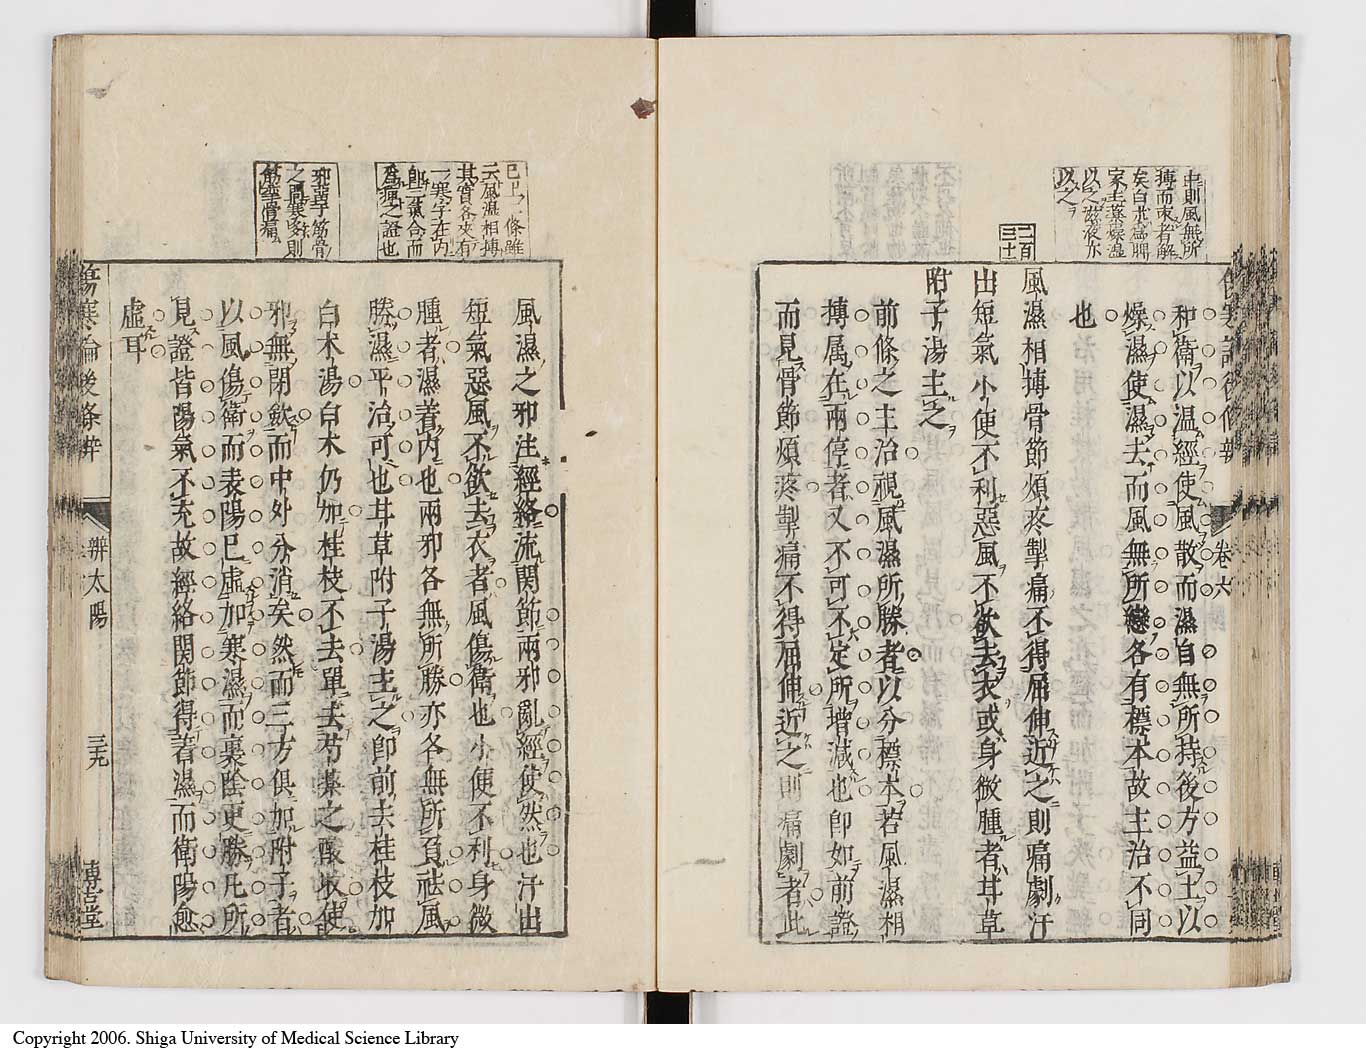 中則風無所
摶而來者解
矣白朮爲脾
家主藥燥濕
以之滋液亦
以之
二百
三十
傷寒論後條辨
卷六
和衞以温經使風散而濕自無所持後方益土以
燥濕使濕去而風無所戀各有標本故主治不同
也
風濕相摶骨節煩疼掣痛不得屈伸近之則痛劇汗
出短氣小便不利惡風不欲去衣或身微腫者甘草
附子湯主之
前條之主治視風濕所勝者以分標本若風濕相
摶属在兩停者又不可不定所增減也卽如前證
而見骨節煩疼掣痛不得屈伸近之則痛劇者此
已上一條雖
云風濕相摶
其實各夾有
一寒字在内
卽三氣合而
爲痺之證也
邪莘于筋骨
之間寒多則
筋攣骨痛
風濕之邪注經絡流関節兩邪亂經使然也汗出
短氣惡風不欲去衣者風傷衞也小便不利身微
腫者濕著内也兩邪各無所勝亦各無所負祛風
勝濕平治可也甘草附子湯主之卽前去桂枝加
白朮湯白朮仍加桂枝不去單去芍藥之酸收使
邪無閉歛而中外分消矣然而三方俱加附子者
以風傷衞而表陽已虛加寒濕而裏陰更勝凡所
見證皆陽氣不充故經絡関節得著濕而衞陽愈
虛耳
傷寒論後條辨
辨太陽
三九
博古堂
Copyright 2006. Shiga University of Medical Science Library